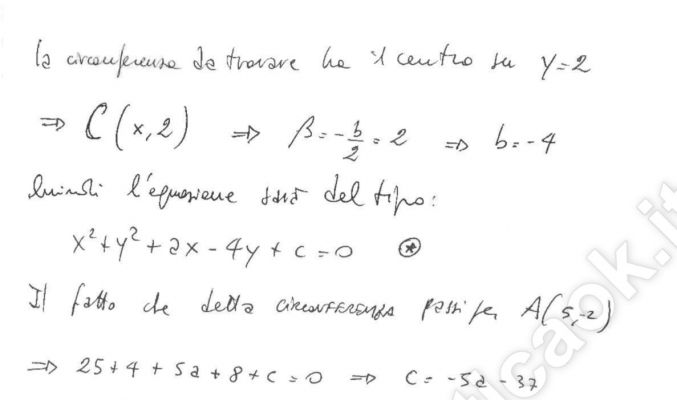 la circonferenza da trovare ha il centro su y=2
⇒ C(x,2) ⇒ β=-b/2=2 ⇒ b=-4
Quindi l'equazione sarà del tipo:
x²+y²+ax-4y+c=0 ⊛
Il fatto che detta circonferenza passi per A(5,-2)
⇒ 25+4+5a+8+c=0 ⇒ c=-5a-37
ticaok.it